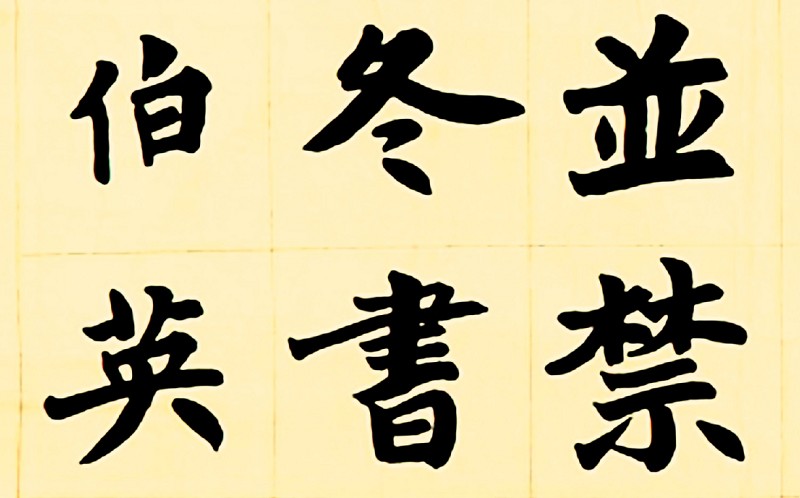 並禁
冬書
伯英